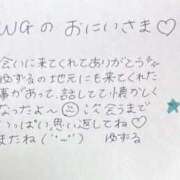 WGの おにいさま♡
会いに来てくれてありがとう
ゆずるの地元にも来てくれた
事があって、話してて懐かしく
なったよ〜☺ 次会うまで
いっぱい思い返してね♡
またね("⌣") ゆずる